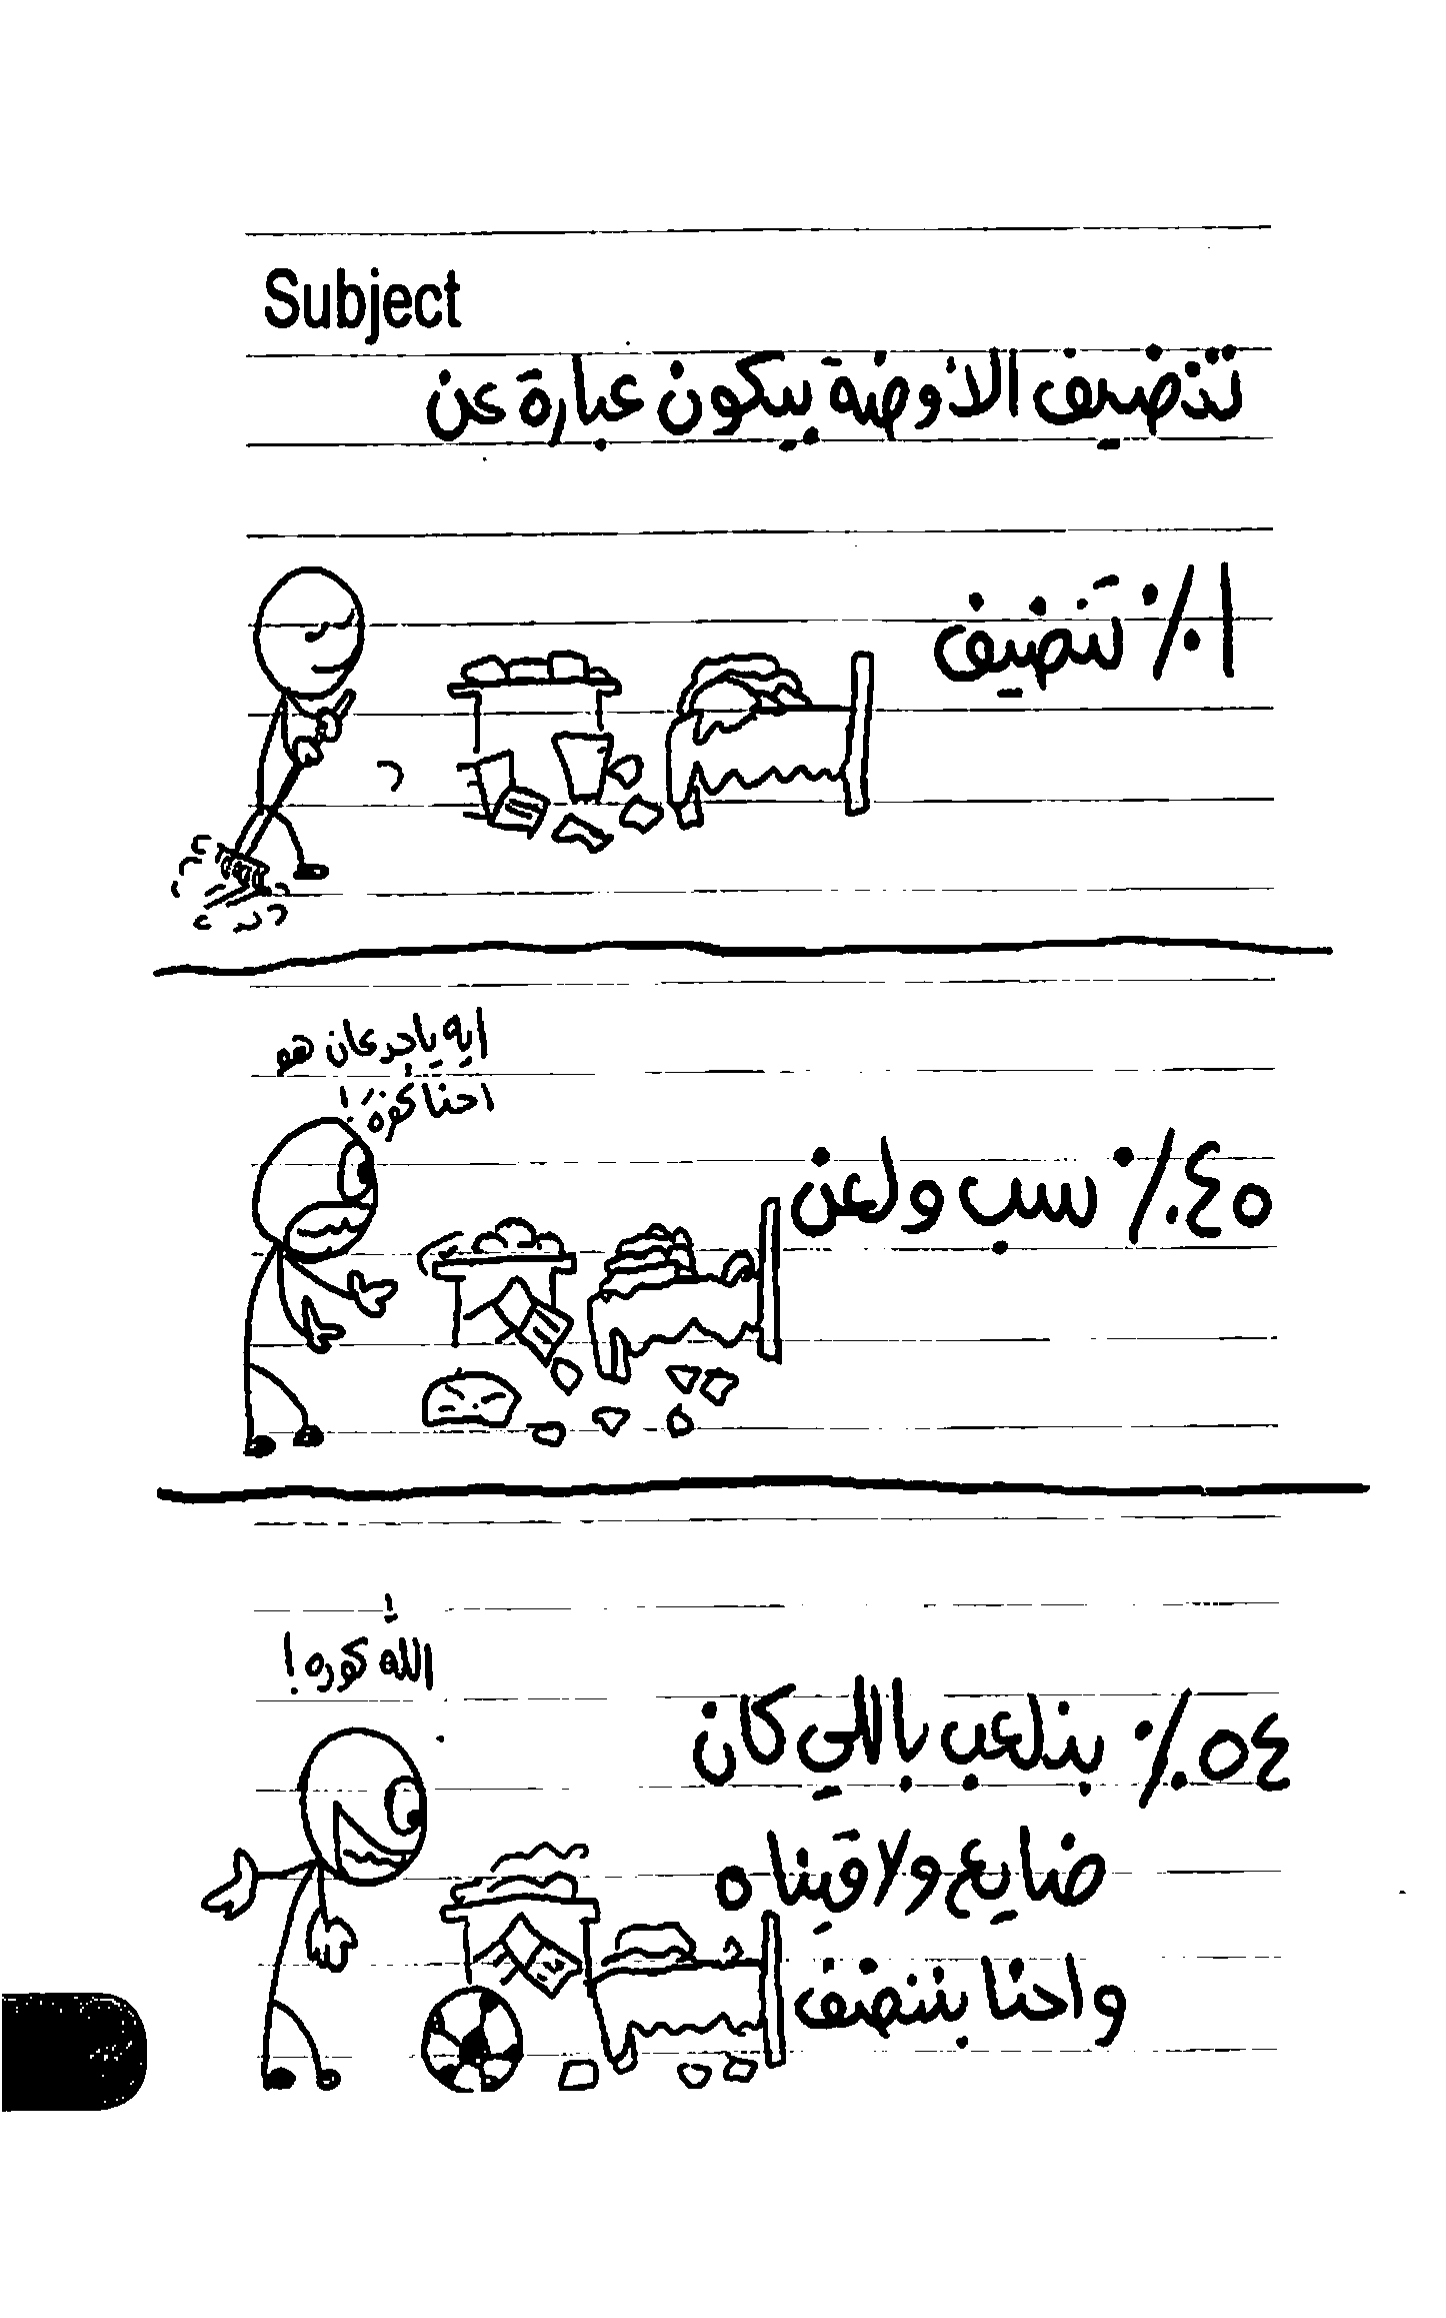 Subject
تنضيف الأوضة بيكون عبارة عن
١٪ تنضيف
ايه ياجدعان هو
احنا كفرة!
٤٥٪ سب ولعن
الله كوره!
٥٤٪ بنلعب باللي كان
ضايع ولاقيناه
واحنا بننضف